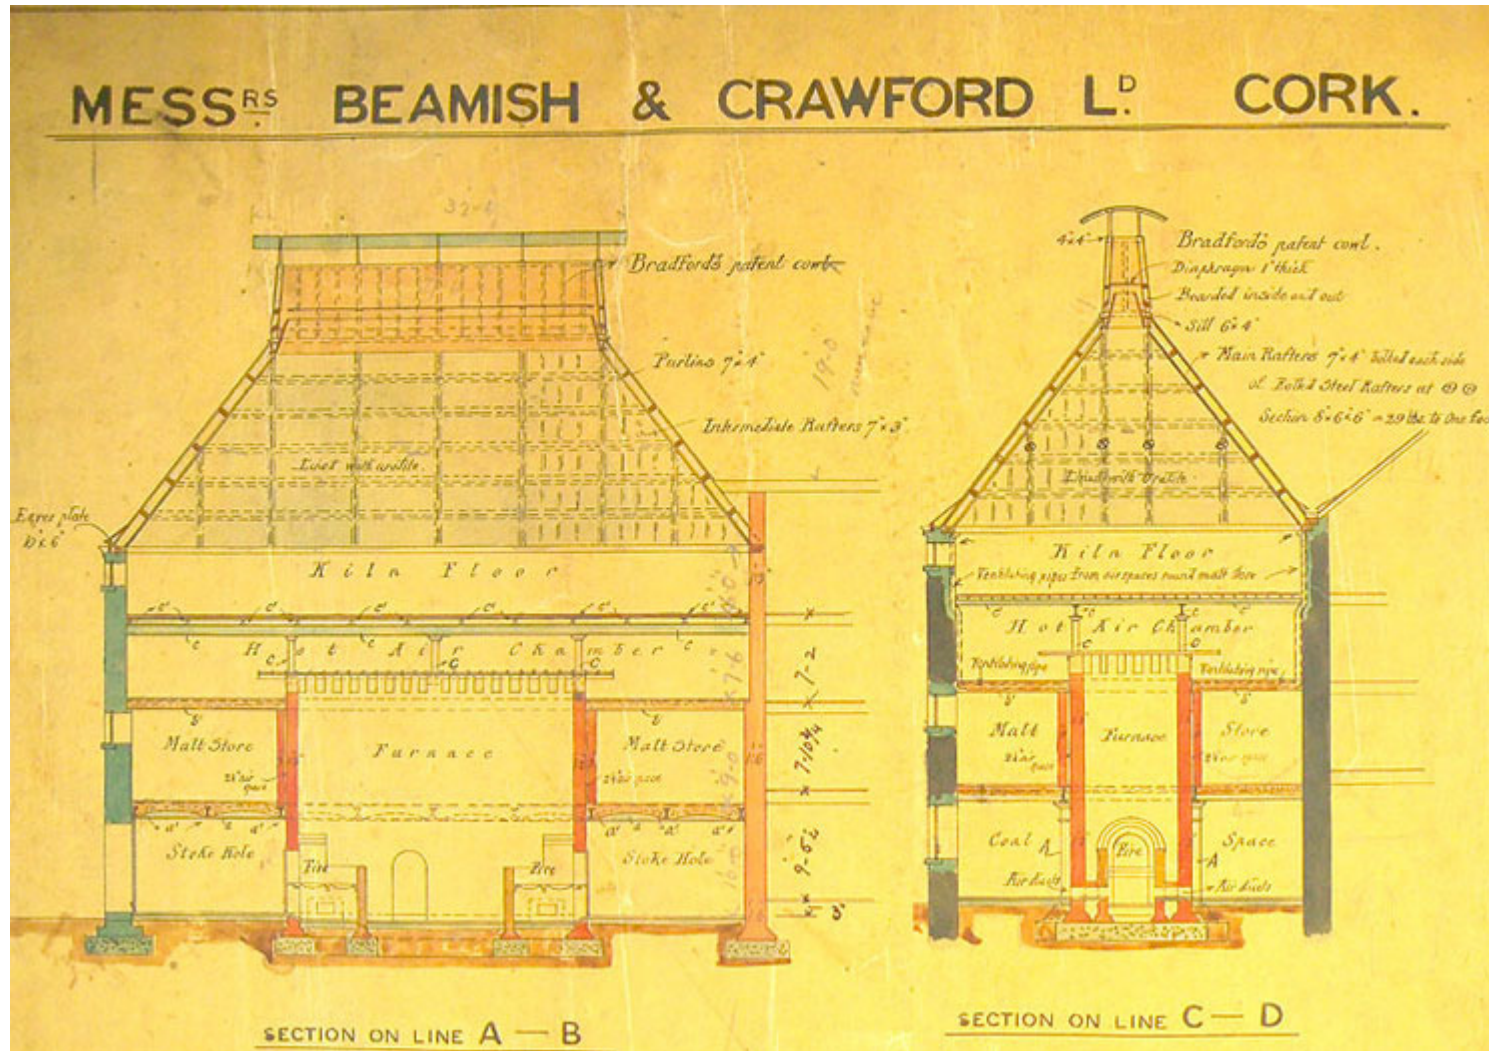 MESSRS. BEAMISH & CRAWFORD LD. CORK.
32-
Bradford's patent cowl
Purlins 7"x4"
Intermediate Rafters 7"x3"
19'-0"
Lined with uralite.
Eaves plate
Kiln Floor
c' c' c' c' c' c'
c c c
Hot Air Chamber
C C C
b' b'
Malt Store
Furnace
Malt Store
2½" air space
2½" air space
a' a a' a' a a' a'
Stoke Hole
Fire
Fire
Stoke Hole
7-2
7-10¾
9-5½
3"
SECTION ON LINE A — B
4"x4"
Bradford's patent cowl.
Diaphragm 1" thick
Boarded inside and out
Sill 6"x4"
Main Rafters 7"x4" bolted each side
of Rolled Steel Rafters at
Section 8"x6"x6" 29 lbs. to One
Lined with Uralite.
Kiln Floor
Ventilating pipes from air spaces round malt store
c' c c c'
Hot Air Chamber
C C
Ventilating pipe
Ventilating pipe
b' b'
Malt
Furnace
Store
2½" air space
2½" air space
Coal
A
Fire
A
Space
Air ducts
Air ducts
SECTION ON LINE C — D